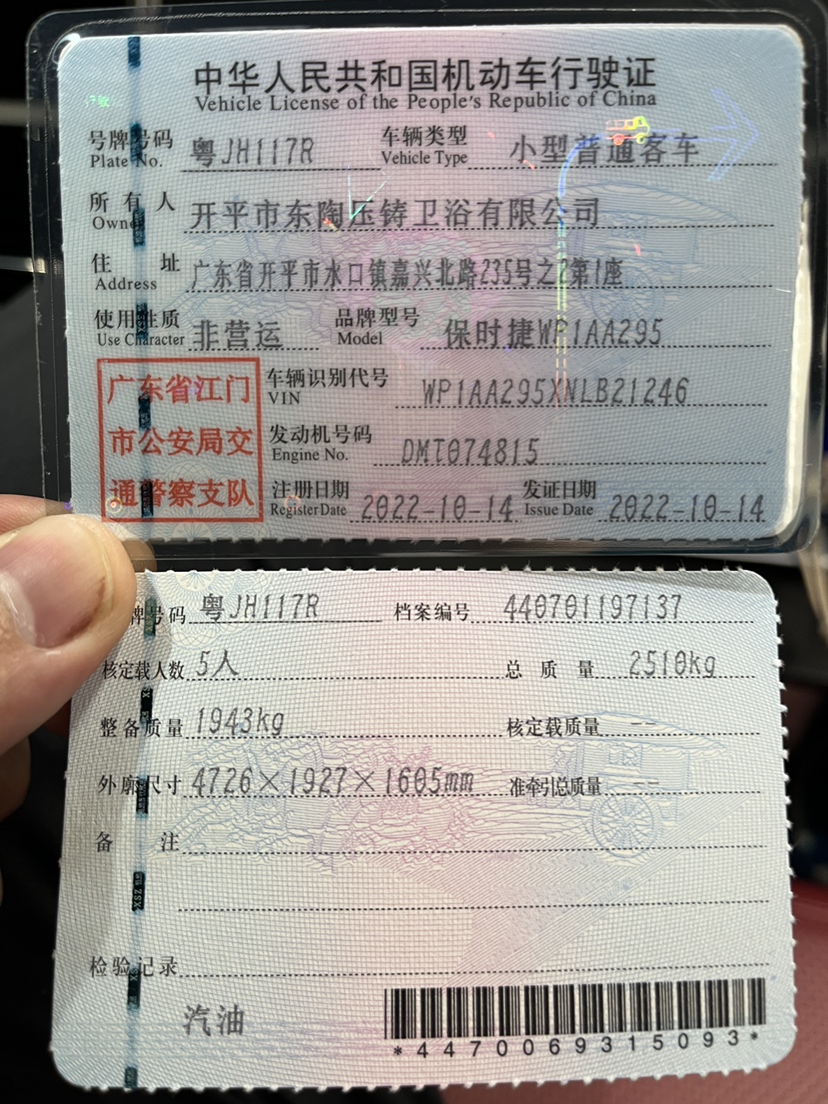 中华人民共和国机动车行驶证
Vehicle License of the People's Republic of China
号牌号码 粤JH117R 车辆类型 小型普通客车
Plate No. Vehicle Type
所有人 开平市东陶压铸卫浴有限公司
Owner
住址 广东省开平市水口镇嘉兴北路235号之2第1座
Address
使用性质 非营运 品牌型号 保时捷WP1AA295
Use Character Model
广东省江门
市公安局交
通警察支队
车辆识别代号 WP1AA295XNLB21246
VIN
发动机号码 DMT074815
Engine No.
注册日期 2022-10-14 发证日期 2022-10-14
Register Date Issue Date
牌号码 粤JH117R 档案编号 440701197137
核定载人数 5人 总质量 2510kg
整备质量 1943kg 核定载质量 --
外廓尺寸 4726×1927×1605mm 准牵引总质量 --
备注
检验记录
汽油
*4470069315093*